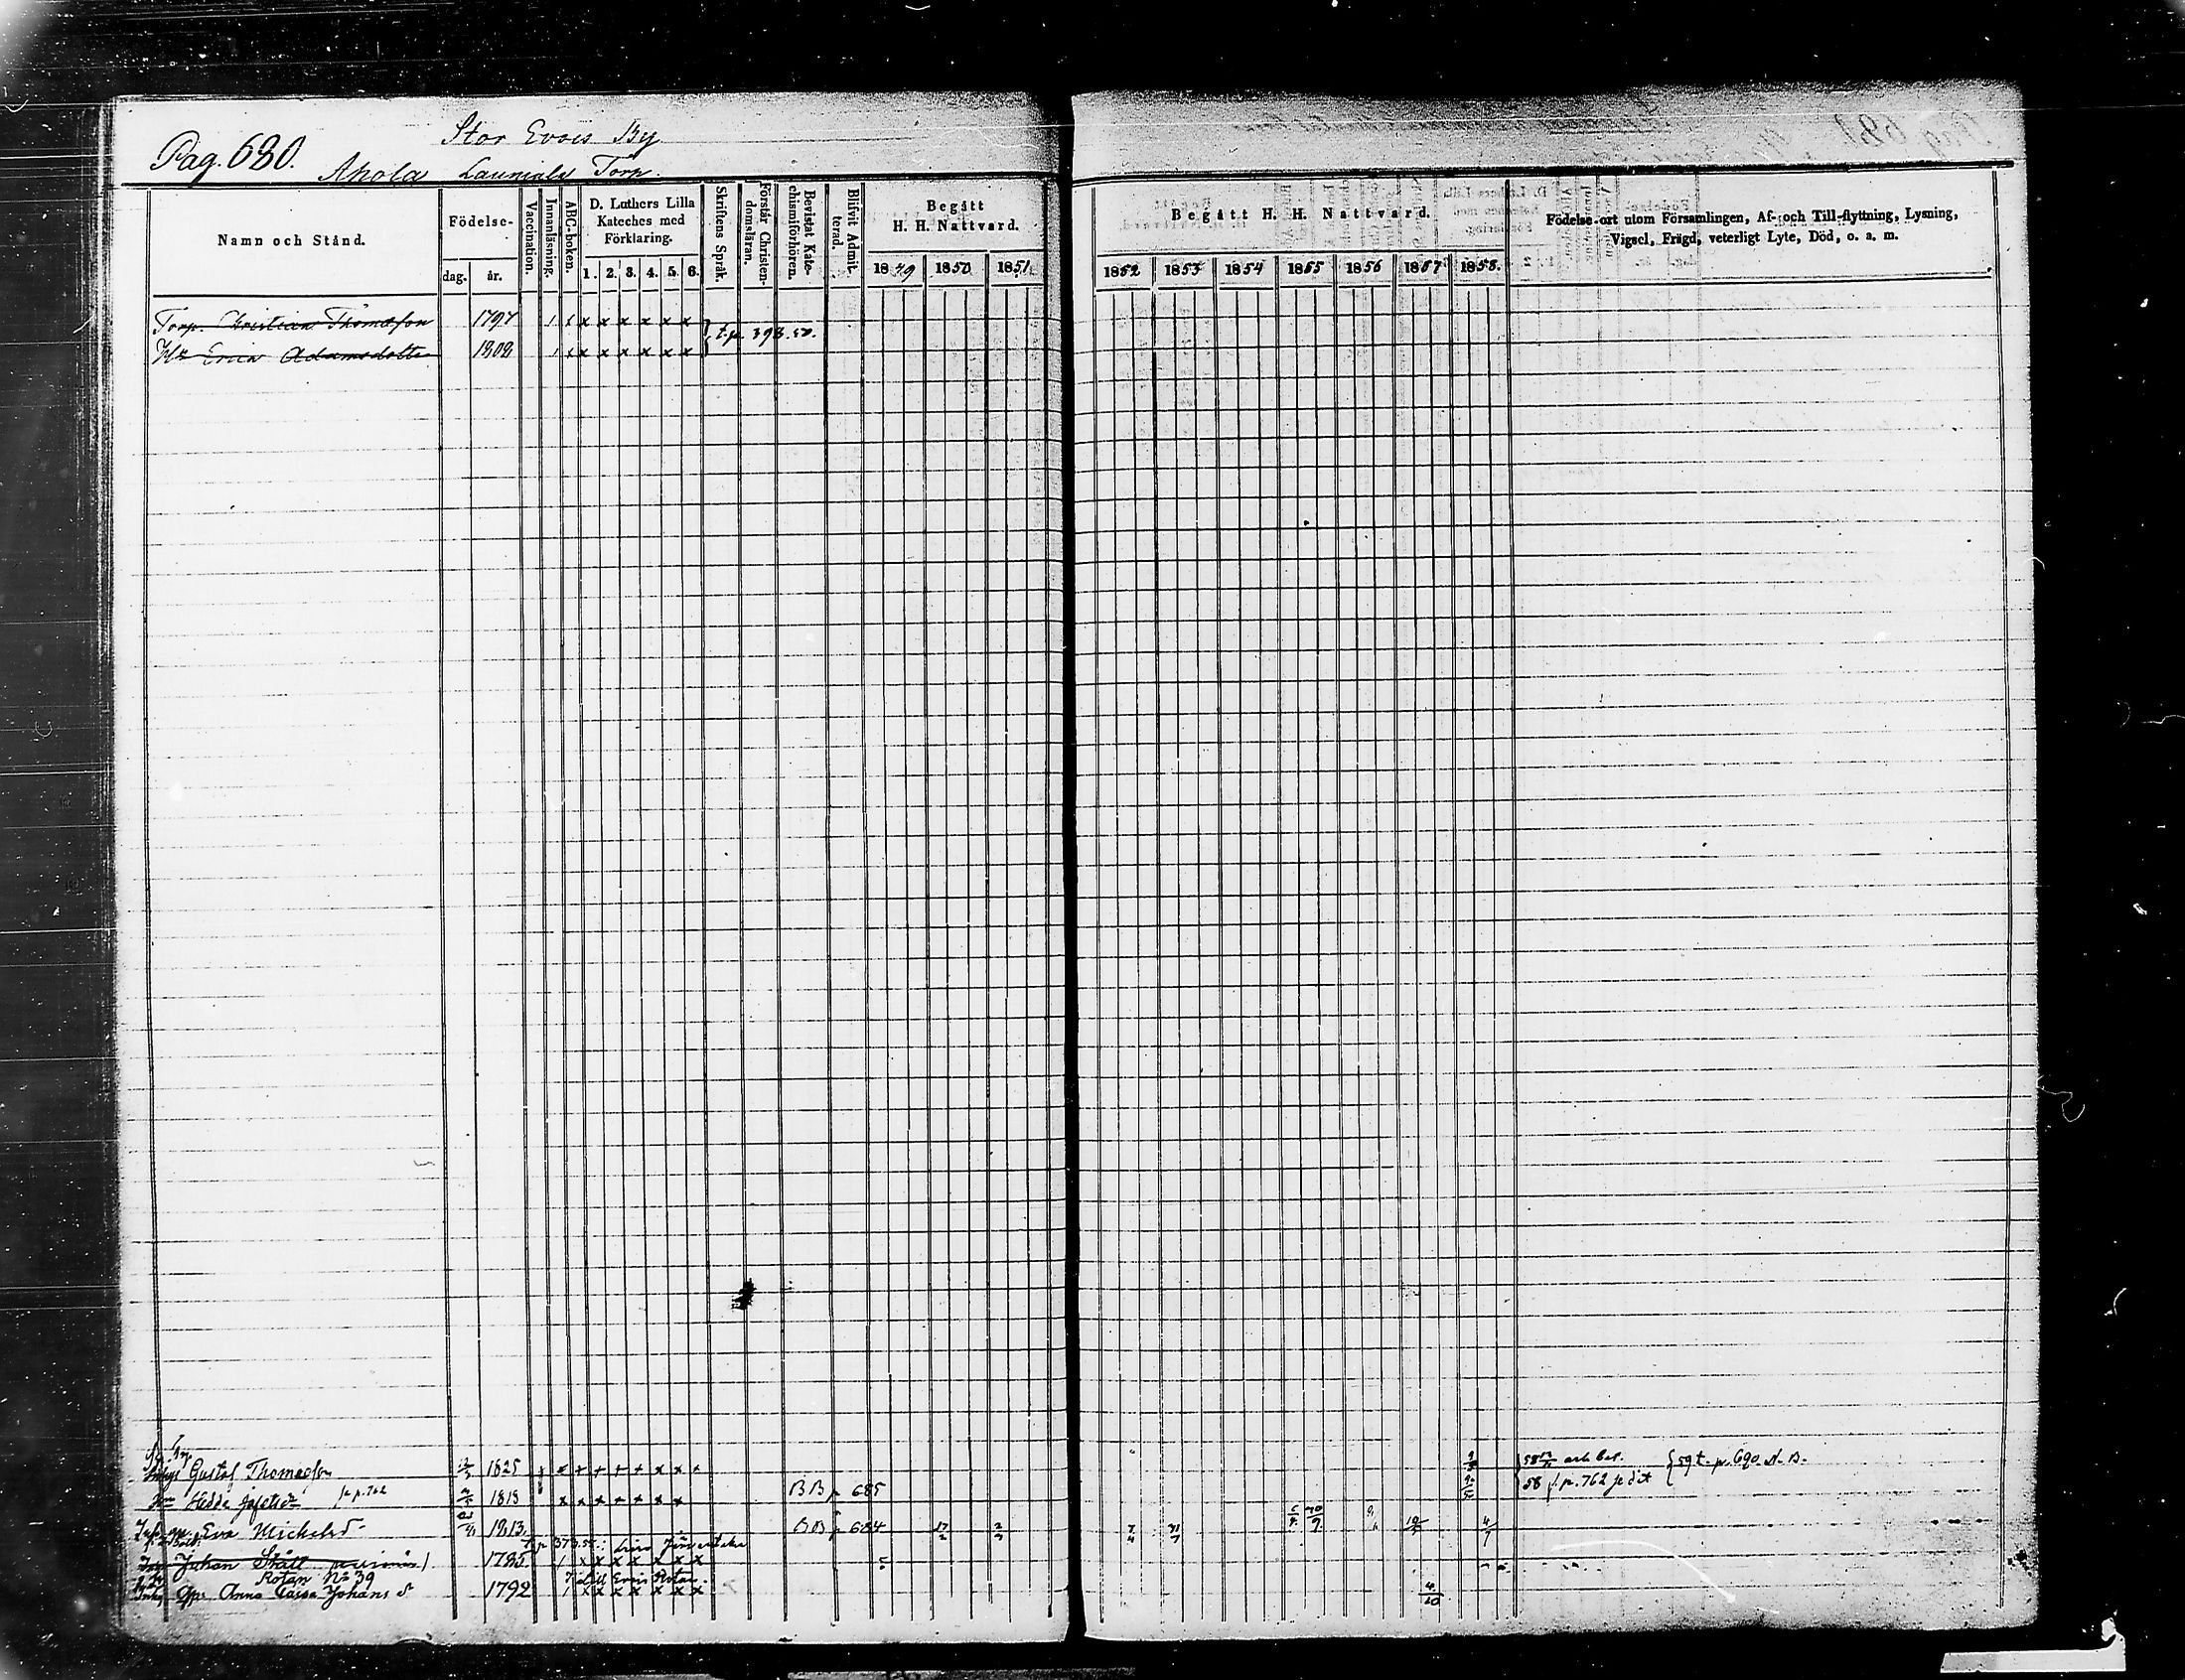 Pag. 680.
Stor Evois By
Ahola Launiala Torp.
Namn och Stånd.
Födelse-
dag. år.
Vaccination.
Innanläsning.
ABC-boken.
D. Luthers Lilla Kateches med Förklaring.
1. 2. 3. 4. 5. 6.
Skriftens Språk.
Förstår Christendomsläran.
Bevistat Katechismiförhören.
Blifvit Admitterad.
Begått H. H. Nattvard.
1849 1850 1851
Begått H. H. Nattvard.
1852 1853 1854 1855 1856 1857 1858.
Födelse-ort utom Församlingen, Af- och Till-flyttning, Lysning,
Vigsel, Frägd, veterligt Lyte, Död, o. a. m.
Torp. Christian Thomasson 1797 / x x x x x x x
t.p. 393.50.
H:u Erica Adamsdotter 1808 / x x x x x x x
Gustaf Thomasson 1825 x x + + + + x x
58 arb. bet. 59 t. p. 690 N. B.
Hedda Josefsd:r fr p. 762 1818 x x x + x x x
B B p 685
58 f. p. 762
Eva Michelsd. 1813.
B B p 684
t p 373.55.
Johan Stått 1785 / x x x x x x x
Rotan No 39
till Evois Rotan.
Anna Caisa Johans d 1792 / x x x x x x x
4/10